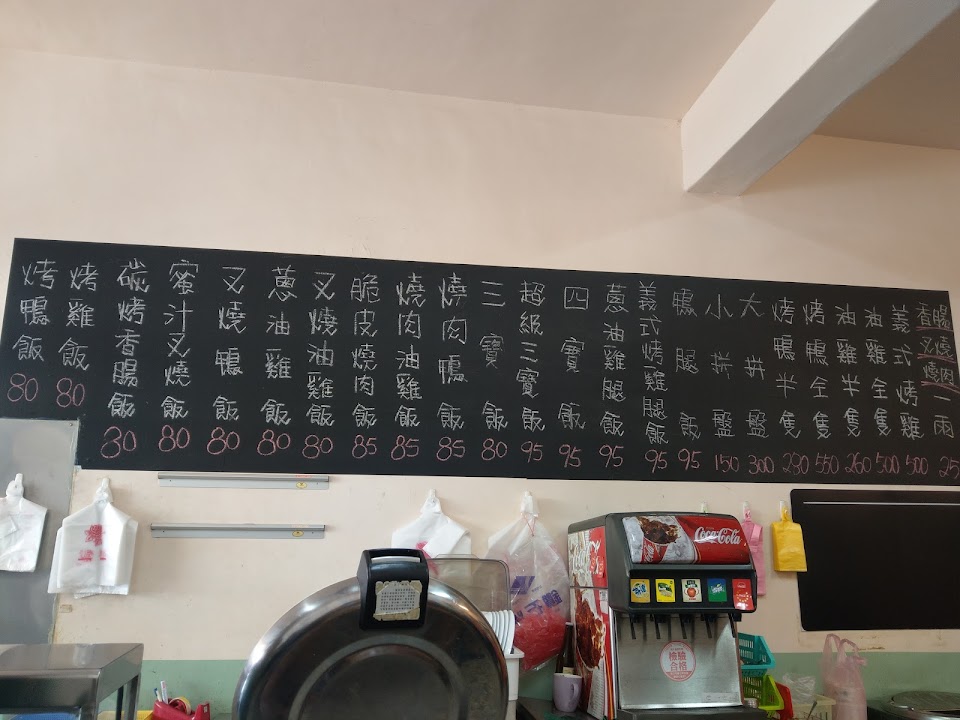 烤鴨飯 80
烤雞飯 80
碳烤香腸飯 80
蜜汁叉燒飯 80
叉燒鴨飯 80
蔥油雞飯 80
叉燒油雞飯 80
脆皮燒肉飯 85
燒肉油雞飯 85
燒肉鴨飯 85
三寶飯 80
超級三寶飯 95
四寶飯 95
蔥油雞腿飯 95
義式烤雞腿飯 95
鴨腿飯 95
小拼盤 150
大拼盤 300
烤鴨半隻 280
烤鴨全隻 550
油雞半隻 260
油雞全隻 500
義式烤雞 500
香腸叉燒燒肉一兩 25
Coca-Cola
檢驗
合格